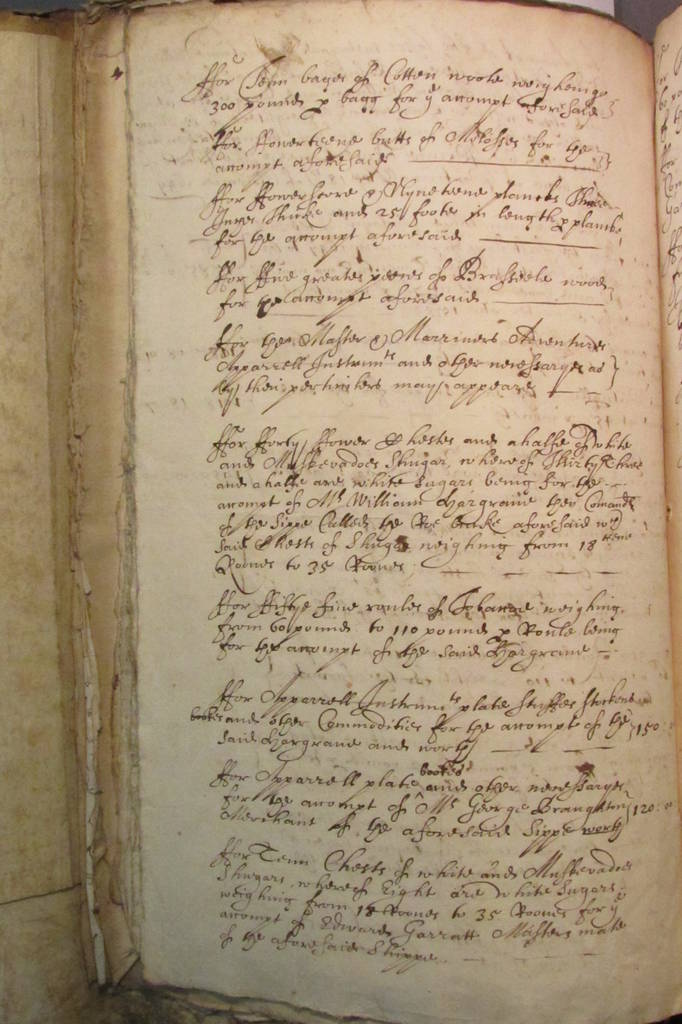 ffor Tenn bages of Cotten woole weigheing
300 pounds p bagg for ye accompt aforesaid
ffor ffowerteene butts of Molosses for the
accompt aforesaid
ffor ffowerscore & Nyneteene plancks three
Inges thicke and 25 foote in length p plancke
for the accompt aforesaid
ffor ffive greate peeces of Brasseele wood
for the accompt aforesaid
ffor the Master & Marriners Adventures
Apparrell Instrumts and other necessaryes as
by their perticulers may appeare
ffor fforty ffower Chestes and a halfe of white
and Muskevadoes Shugar, whereof Thirty three
and a halfe are white sugars being for the
accompt of Mr William Hargrave then Comandr
of the Shippe Called the Roe bucke aforesaid wch
said Chests of Shugr weighing from 18 teene
Roones to 35 Roones
ffor ffiftye five roules of Tobacco weighing
from 60 pounds to 110 pounds p Roule being
for the accompt of the said Hargrave
ffor Apparrell Instrumts plate stuffes stockens
bookes and other Commodities for the accompt of the 150
said Hargrave and worth
ffor Apparrell plate bookes and other necessaryes
for the accompt of Mr George Braughton 120
Merchant of the aforesaid Shippe worth
ffor Tenn Chests of white and Muskevadoes
Shugars whereof Eight are white Sugars
weighing from 18 Roones to 35 Roones for ye
accompt of Edward Garratt Masters mate
of the aforesaid Shippe